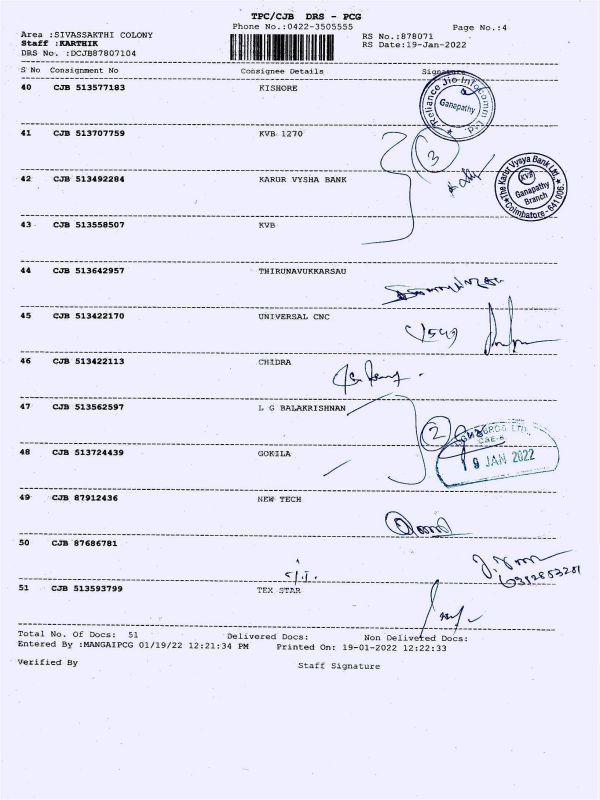 TPC/CJB DRS - PCG
Phone No.:0422-3505555 Page No.:4
Area :SIVASSAKTHI COLONY RS No.:878071
Staff :KARTHIK RS Date:19-Jan-2022
DRS No. :DCJB87807104
S No Consignment No Consignee Details Signature
40 CJB 513577183 KISHORE
Reliance Jio Infocomm Ltd.
Ganapathy
41 CJB 513707759 KVB 1270
3
42 CJB 513492284 KARUR VYSHA BANK
The Karur Vysya Bank Ltd.
KVB
Ganapathy
Branch
Coimbatore-641 006.
43 CJB 513558507 KVB
44 CJB 513642957 THIRUNAVUKKARSAU
45 CJB 513422170 UNIVERSAL CNC
46 CJB 513422113 CHIDRA
47 CJB 513562597 L G BALAKRISHNAN
2
48 CJB 513724439 GOKILA
19 JAN 2022
49 CJB 87912436 NEW TECH
50 CJB 87686781
51 CJB 513593799 TEX STAR
Total No. Of Docs: 51 Delivered Docs: Non Delivered Docs:
Entered By :MANGAIPCG 01/19/22 12:21:34 PM Printed On: 19-01-2022 12:22:33
Verified By Staff Signature